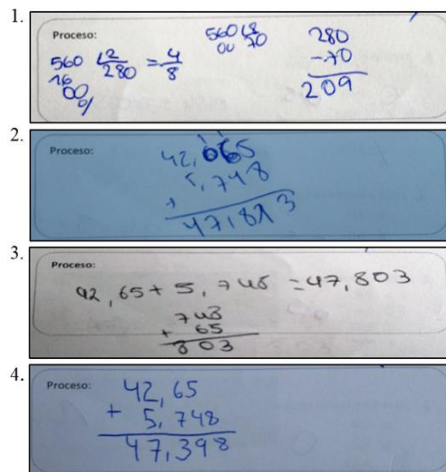 1.
Proceso:
560 2
280 = 4/8
16
00
0/
560 8
00 70
280
-70
209
2.
Proceso:
42,665
5,748
+
47,813
3.
Proceso:
42,65 + 5,748 = 47,803
743
+ 65
803
4.
Proceso:
42,65
+ 5,748
47,398